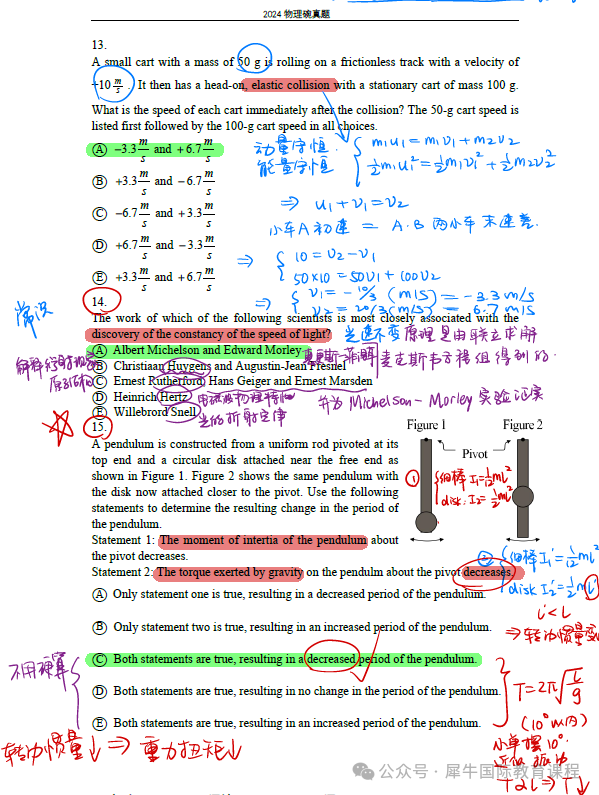 2024 物理碗真题
13.
A small cart with a mass of 50 g is rolling on a frictionless track with a velocity of
+10 m/s . It then has a head-on, elastic collision with a stationary cart of mass 100 g.
What is the speed of each cart immediately after the collision? The 50-g cart speed is
listed first followed by the 100-g cart speed in all choices.
A −3.3 m/s and +6.7 m/s
B +3.3 m/s and −6.7 m/s
C −6.7 m/s and +3.3 m/s
D +6.7 m/s and −3.3 m/s
E +3.3 m/s and +6.7 m/s
动量守恒.
能量守恒
m1u1 = m1v1 + m2v2
½m1u1² = ½m1v1² + ½m2v2²
⇒ u1 + v1 = v2
小车A初速 = A.B两小车末速差.
⇒ { 10 = v2 - v1
50×10 = 50v1 + 100v2
⇒ { v1 = -10/3 (m/s) = -3.3 m/s
v2 = 20/3 (m/s) = 6.7 m/s
常识
14.
The work of which of the following scientists is most closely associated with the
discovery of the constancy of the speed of light?
光速不变原理是由联立求解
A Albert Michelson and Edward Morley
麦克斯韦方程组得到的.
B Christiaan Huygens and Augustin-Jean Fresnel
C Ernest Rutherford, Hans Geiger and Ernest Marsden
D Heinrich Hertz
E Willebrord Snell
光的折射定律
并为 Michelson - Morley 实验证实
15.
A pendulum is constructed from a uniform rod pivoted at its
top end and a circular disk attached near the free end as
shown in Figure 1. Figure 2 shows the same pendulum with
the disk now attached closer to the pivot. Use the following
statements to determine the resulting change in the period of
the pendulum.
Figure 1 Figure 2
Pivot
① { 细棒 I1=1/12 mL²
disk: I2=½mL²
Statement 1: The moment of intertia of the pendulum about
the pivot decreases.
Statement 2: The torque exerted by gravity on the pendulm about the pivot decreases.
② { 细棒 I1'=1/12 mL²
disk I2'=½ml²
l<L
⇒ 转动惯量变
A Only statement one is true, resulting in a decreased period of the pendulum.
B Only statement two is true, resulting in an increased period of the pendulum.
C Both statements are true, resulting in a decreased period of the pendulum.
D Both statements are true, resulting in no change in the period of the pendulum.
E Both statements are true, resulting in an increased period of the pendulum.
不用硬算
T=2π√(L/g)
(10°以内)
小单摆10°
近似
T∝L ⇒ T↓
转动惯量↓ ⇒ 重力扭矩↓
公众号 · 犀牛国际教育课程